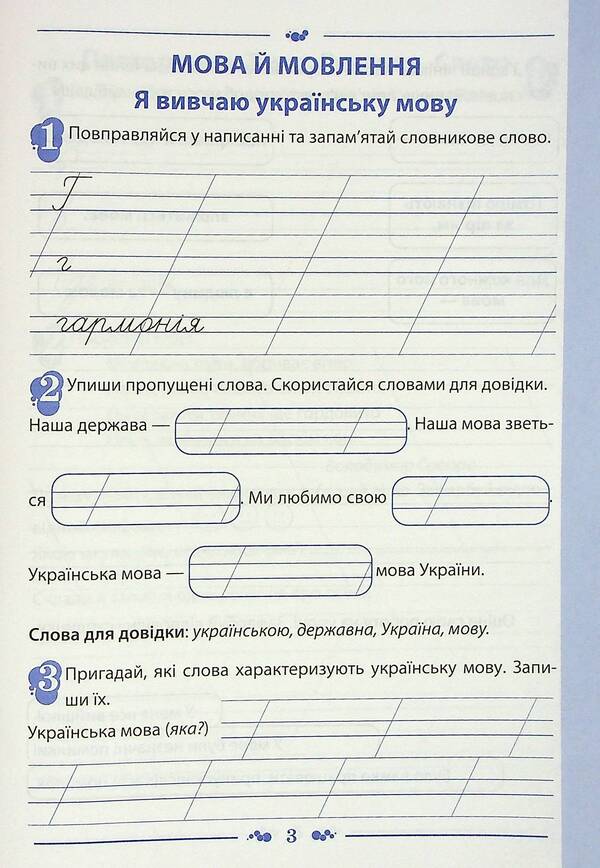 МОВА Й МОВЛЕННЯ
Я вивчаю українську мову
1 Повправляйся у написанні та запам'ятай словникове слово.
Г
г
гармонія
2 Упиши пропущені слова. Скористайся словами для довідки.
Наша держава — . Наша мова зветь-
ся . Ми любимо свою .
Українська мова — мова України.
Слова для довідки: українською, державна, Україна, мову.
3 Пригадай, які слова характеризують українську мову. Запи-
ши їх.
Українська мова (яка?)
3